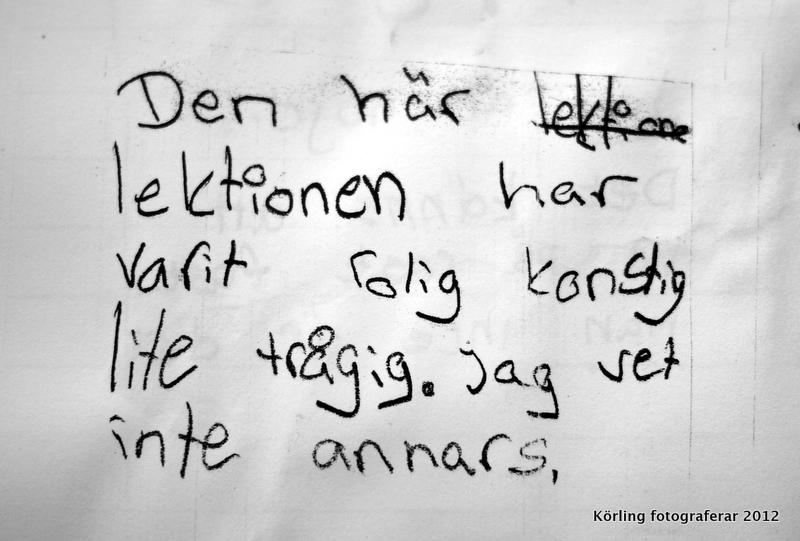 Den här lektione
lektionen har
varit rolig konstig
lite trågig. jag vet
inte annars,
Körling fotograferar 2012